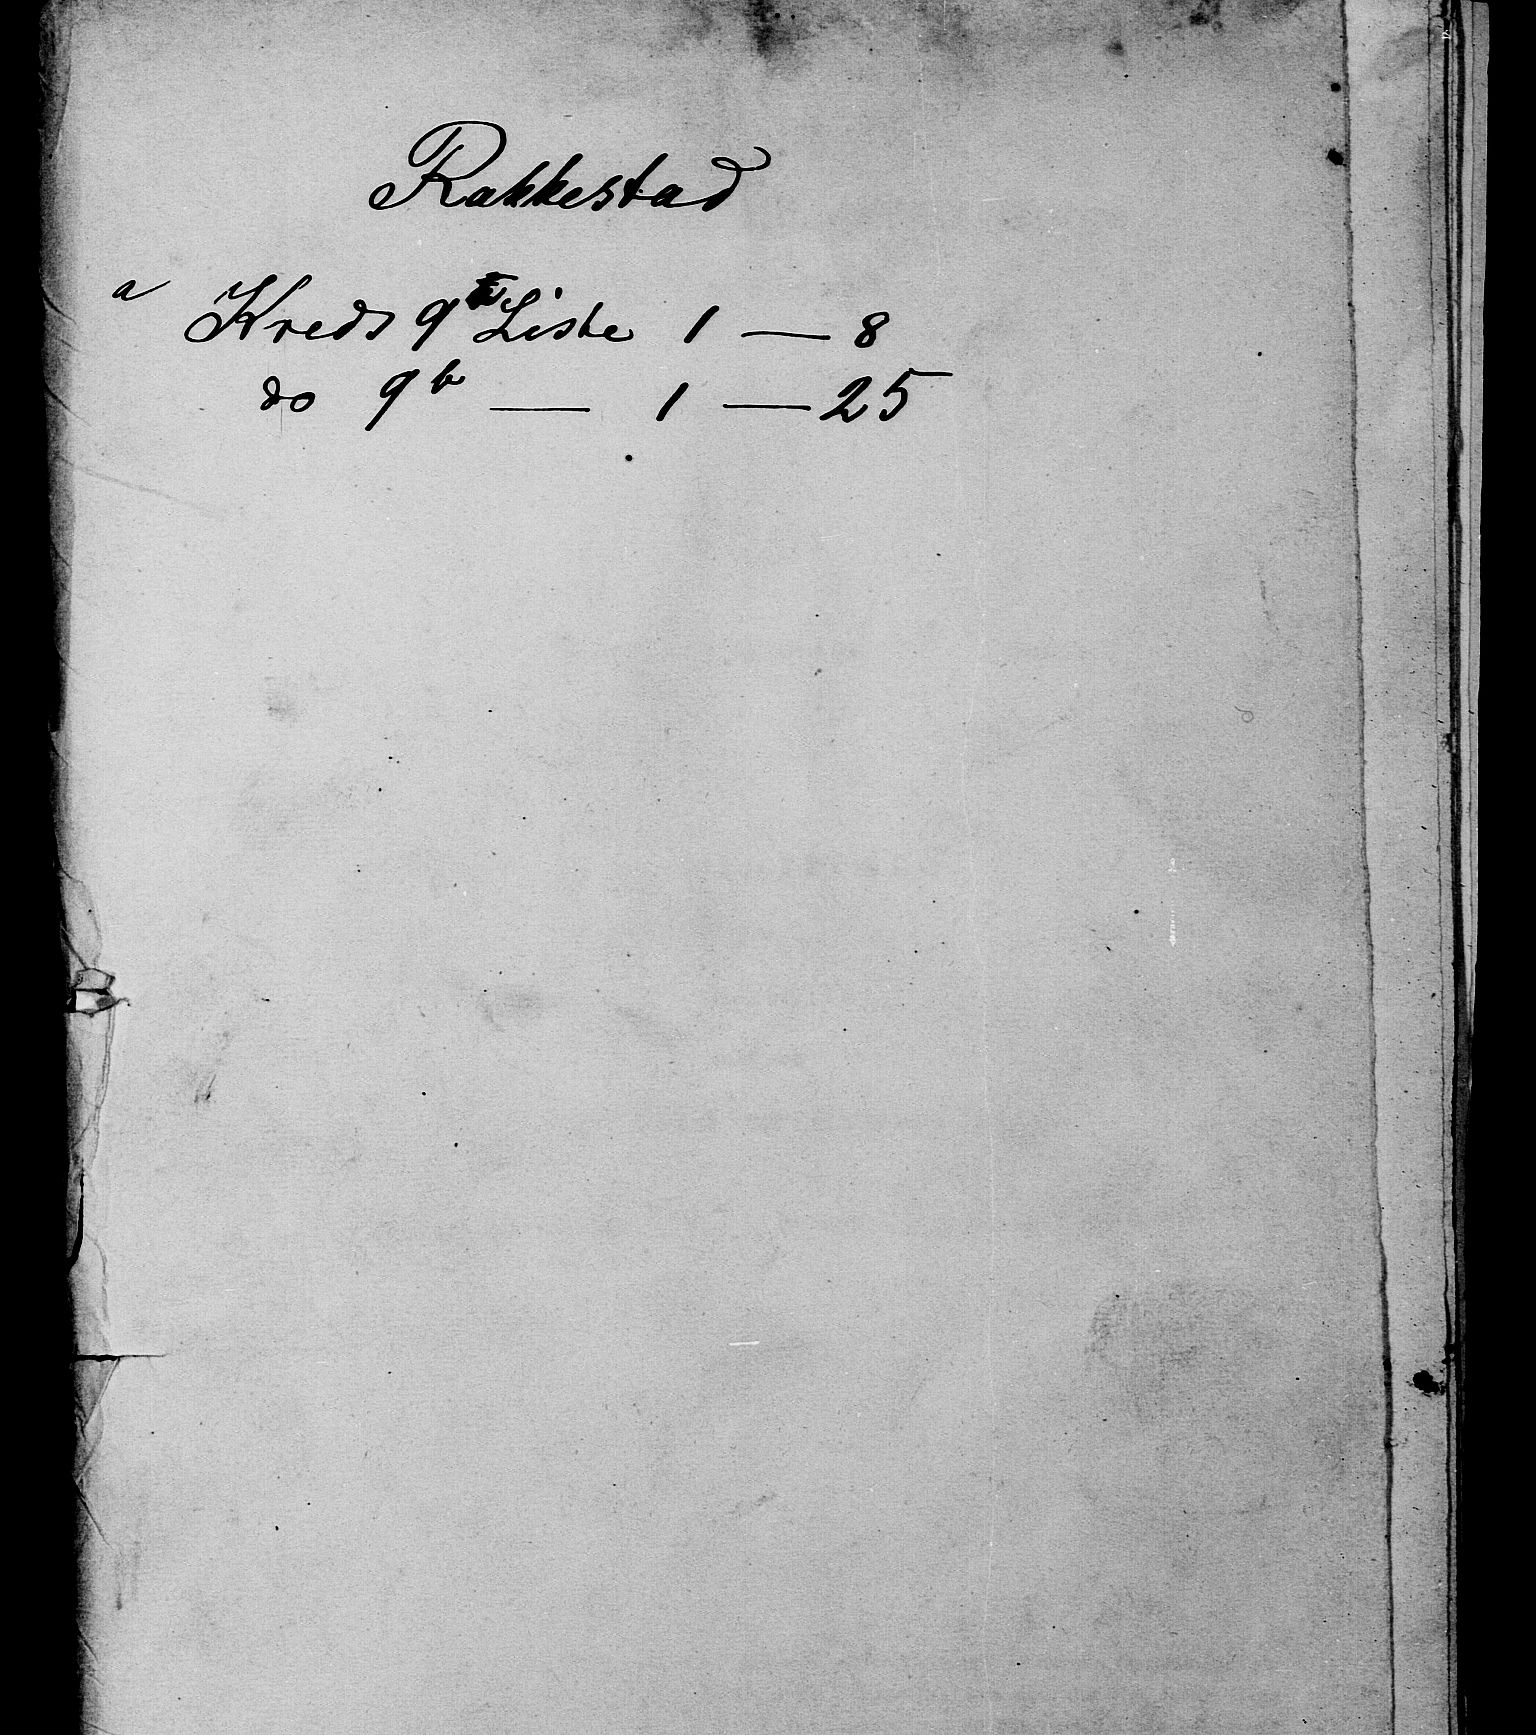 Rakkestad
a Kreds 9 Liste 1 — 8
do 9b — 1 — 25